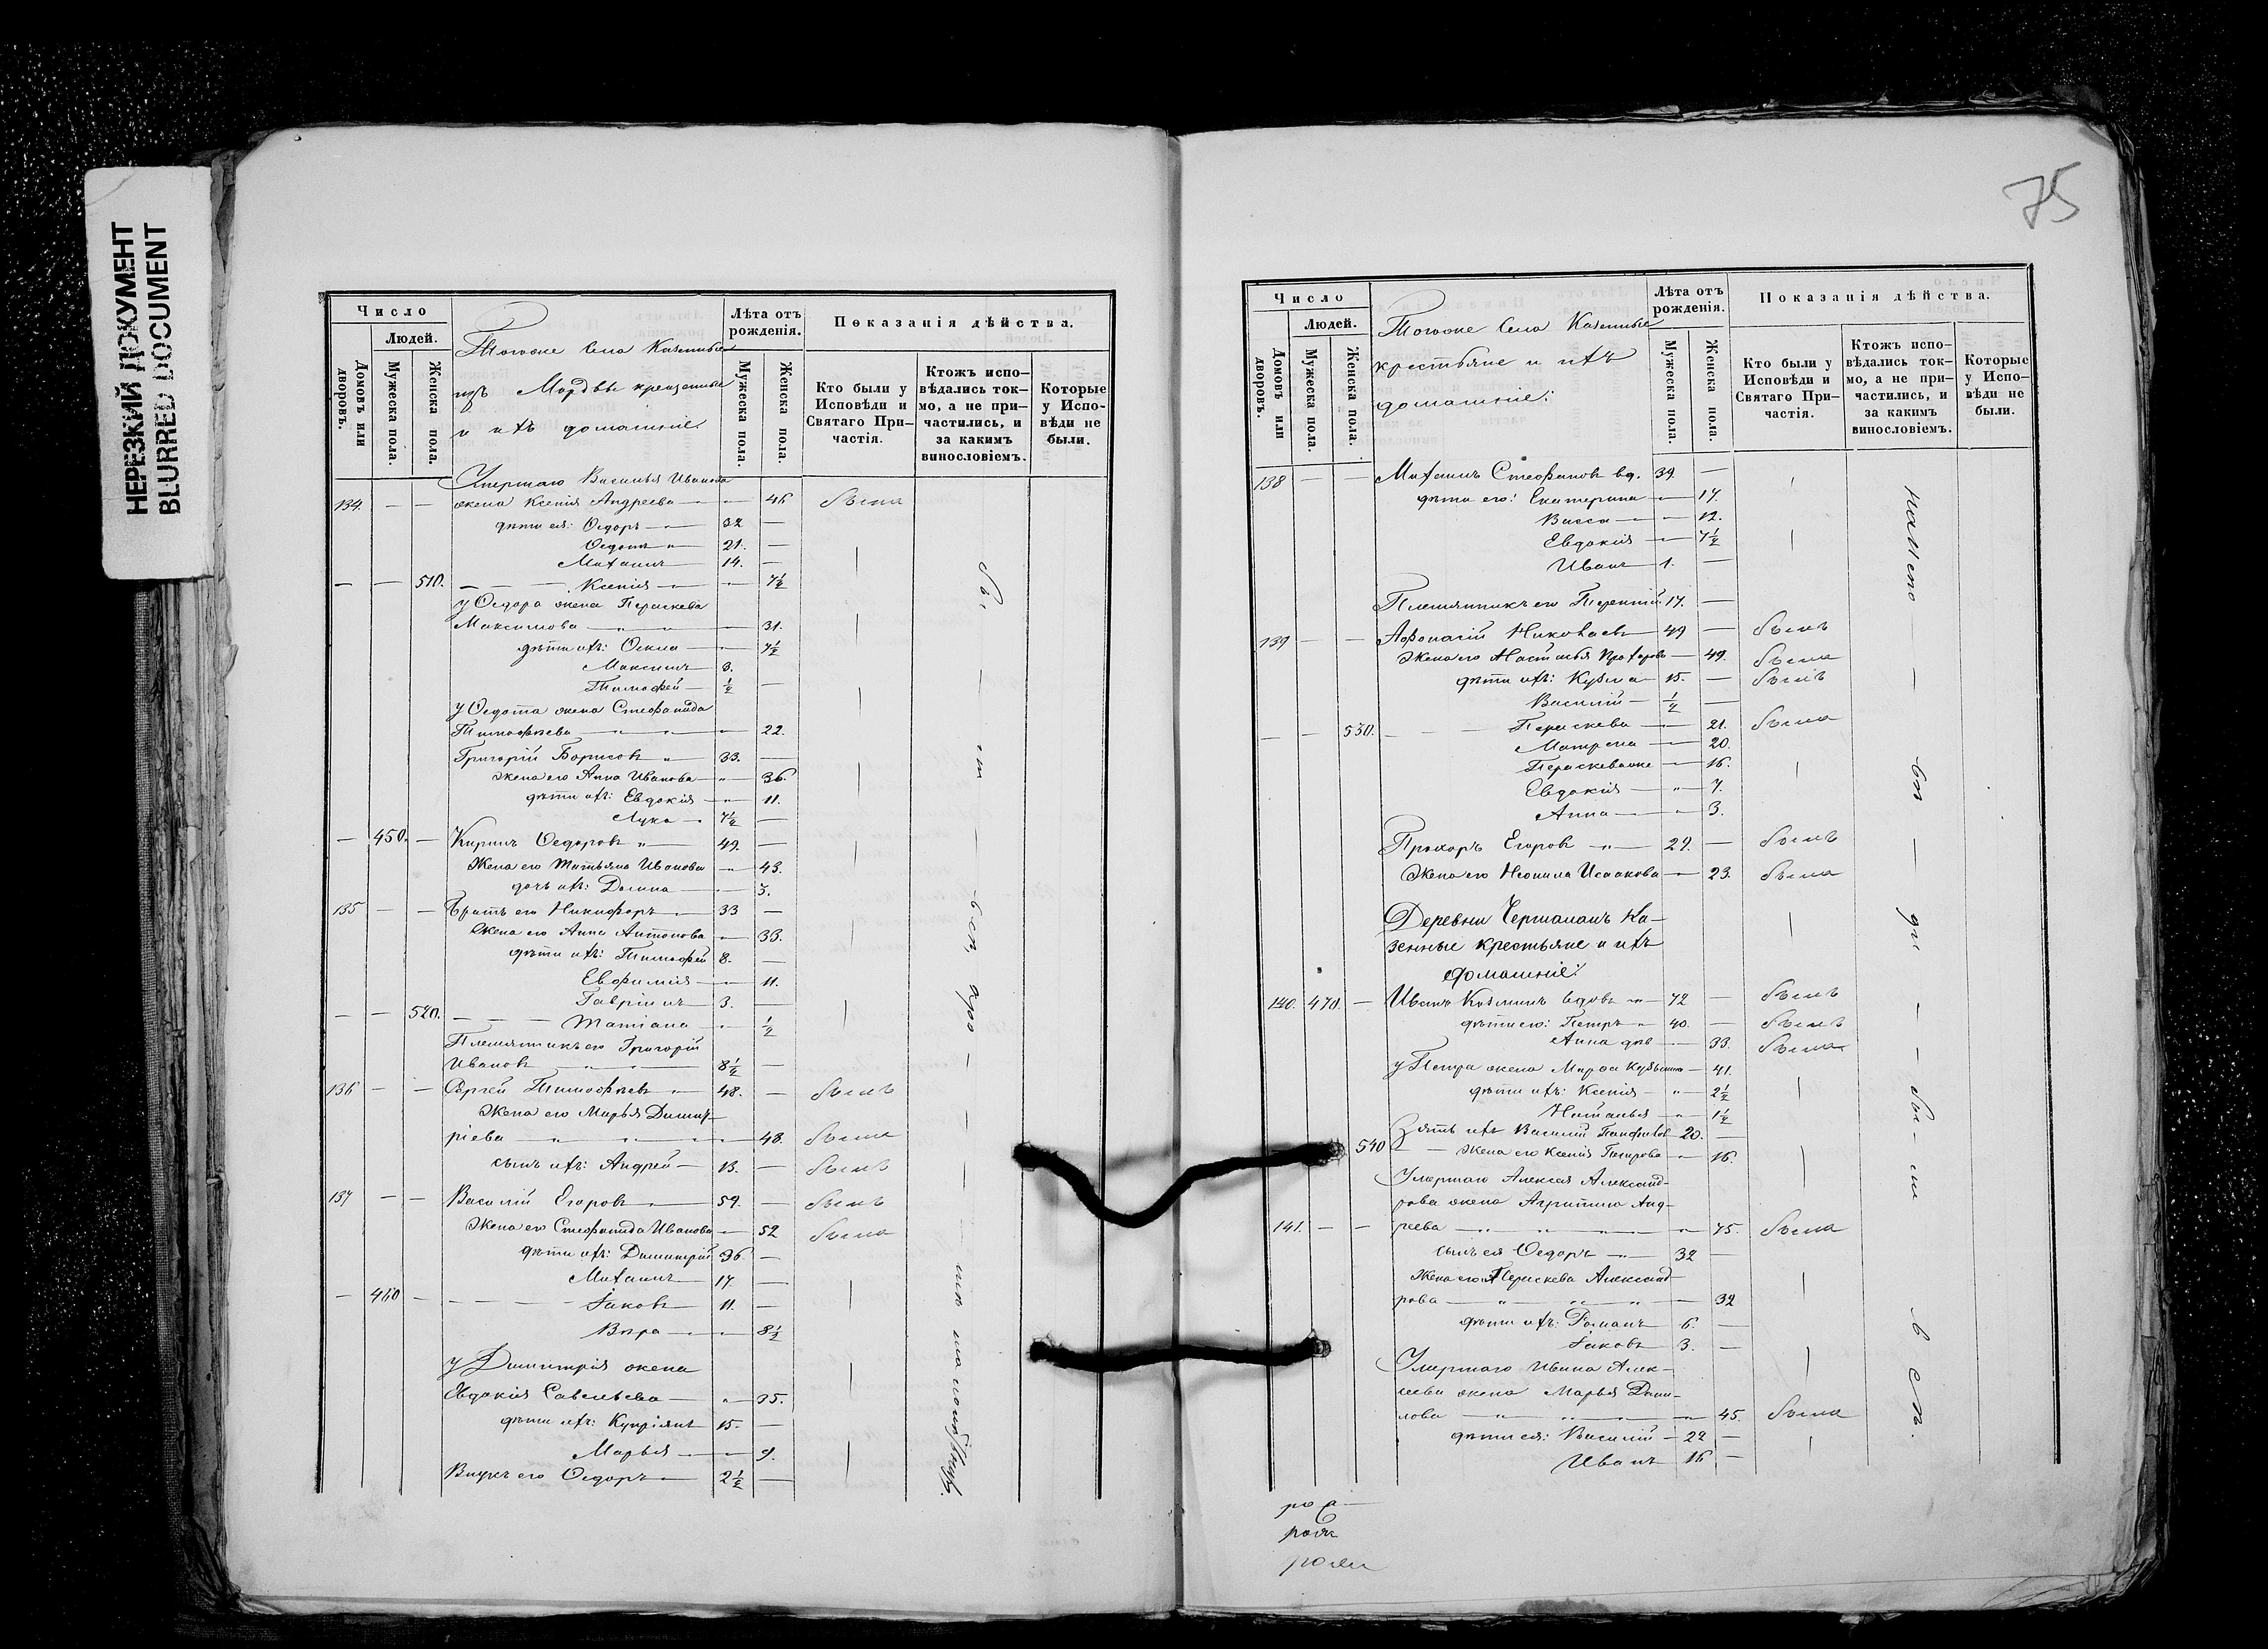 НЕРЕЗКИЙ ДОКУМЕНТ
BLURRED DOCUMENT
Число
Людей.
Домовъ или дворовъ.
Мужеска пола.
Женска пола.
Тогоже Села Казенные
изъ Мордвы крещенные
и ихъ домашніе
Лѣта отъ рожденія.
Мужеска пола.
Женска пола.
Показанія дѣйства.
Кто были у Исповѣди и Святаго Причастія.
Ктожъ исповѣдались токмо, а не причастились, и за какимъ винословіемъ.
Которые у Исповѣди не были.
Умершаго Василья Иванова
134. — — жена Ксенія Андреева — 46 была
дѣти ея: Ѳедоръ — 32 —
Ѳедотъ 21. —
Михаилъ 14. —
— — 510. — Ксенія — 7½
У Ѳедора жена Параскева
Максимова — 31.
дѣти ихъ: Ѳекла — 7½
Максимъ 3.
Тимофей — ½ —
У Ѳедота жена Стефанида
Тимофѣева — 22.
Григорій Борисовъ 33. —
Жена его Анна Иванова — 36.
дѣти ихъ: Евдокія — 11.
Лука 7½ —
— 450. — Кирилъ Ѳедоровъ 49. —
Жена его Татьяна Иванова — 43.
дочь ихъ: Домна — 3.
135 — — Братъ его Никифоръ 33 —
Жена его Анна Антонова — 33.
дѣти ихъ: Тимофей 8. —
Евфимія — 11.
Гавріилъ 3. —
— — 520. — Татіана — ½
Племянникъ его Григорій
Ивановъ 8½ —
136 — — Сергей Тимофѣевъ 48. — былъ
Жена его Марья Димит-
ріева — 48. была
сынъ ихъ: Андрей — 13. — былъ
137 — — Василій Егоровъ 59. — былъ
Жена его Стефанида Иванова — 52 была
дѣти ихъ: Димитрій 36. —
Михаилъ 17. —
— 460 — Іаковъ 11. —
Вѣра — 8½
У Димитрія жена
Евдокія Савельева — 35.
дѣти ихъ: Купріянъ 15. —
Марья — 9.
Внукъ его Ѳедоръ 2½ —
75
Число
Людей.
Домовъ или дворовъ.
Мужеска пола.
Женска пола.
Тогоже Села Казенные
крестьяне и ихъ
домашніе:
Лѣта отъ рожденія.
Мужеска пола.
Женска пола.
Показанія дѣйства.
Кто были у Исповѣди и Святаго Причастія.
Ктожъ исповѣдались токмо, а не причастились, и за какимъ винословіемъ.
Которые у Исповѣди не были.
138 — — Михаилъ Стефановъ вд. 39. —
дѣти его: Екатерина — 17.
Васса — 12.
Евдокія — 7½
Иванъ 1. —
Племянникъ его Терентій 17. —
139 — — Афонасій Николаевъ 49 — былъ
Жена его Настасья Прохорова — 49. была
дѣти ихъ: Кузма 15. — былъ
Василій — ½ —
— — 530. — Параскева — 21. была
Матрена — 20.
Параскеваже — 16.
Евдокія — 7.
Анна — 3.
Прохоръ Егоровъ 29. — былъ
Жена его Неонила Исаакова — 23. была
Деревни Чермаланъ Ка-
зенные крестьяне и ихъ
домашніе:
140. 470. — Иванъ Козминъ вдовъ 72 — былъ
дѣти его: Петръ 40. — былъ
Анна — 33. была
У Петра жена Марѳа Кузьмина — 41.
дѣти ихъ: Ксенія — 2½
Наталья 1½
Зять ихъ Василій Панфиловъ 20. —
540 — Жена его Ксенія Петрова — 16.
Умершаго Алексея Александ-
рова жена Агрипина Анд-
141. — — реева — 75. была
сынъ ея Ѳедоръ 32 —
Жена его Параскева Александ-
рова — 32
дѣти ихъ: Романъ 6. —
Іаковъ 3. —
Умершаго Ивана Алек-
сеева жена Марья Дани-
лова — 45. была
дѣти ея: Василій — 22 —
Иванъ 16 —